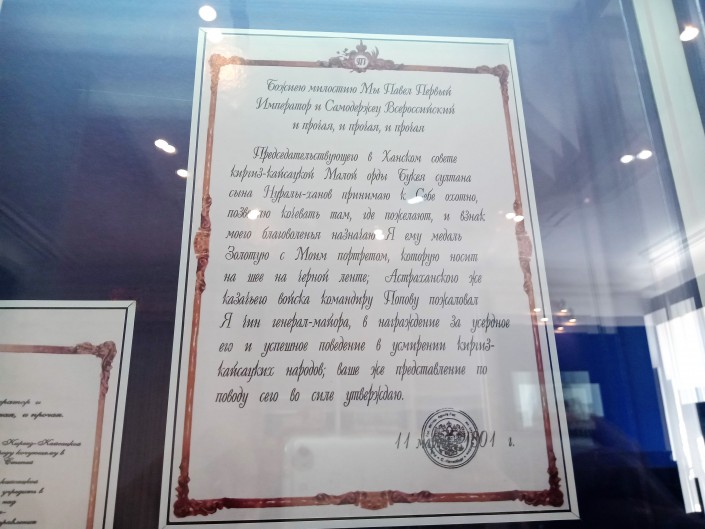 Божиею милостию Мы Павел Первый
Император и Самодержец Всероссийский
и прочая, и прочая, и прочая
Председательствующего в Ханском совете
киргиз-кайсацкой Малой орды Букея султана
сына Нуралы-ханов принимаю к Себе охотно,
позволяю кочевать там, где пожелают, и взнак
моего благоволенья назначаю Я ему медаль
Золотую с Моим портретом, которую носит
на шее на черной ленте; Астраханского же
казачьего войска командиру Попову пожаловал
Я чин генерал-майора, в награждение за усердное
его и успешное поведение в усмирении киргиз-
кайсацких народов; ваше же представление по
поводу сего во силе утверждаю.
11 1801 г.
и прочая.